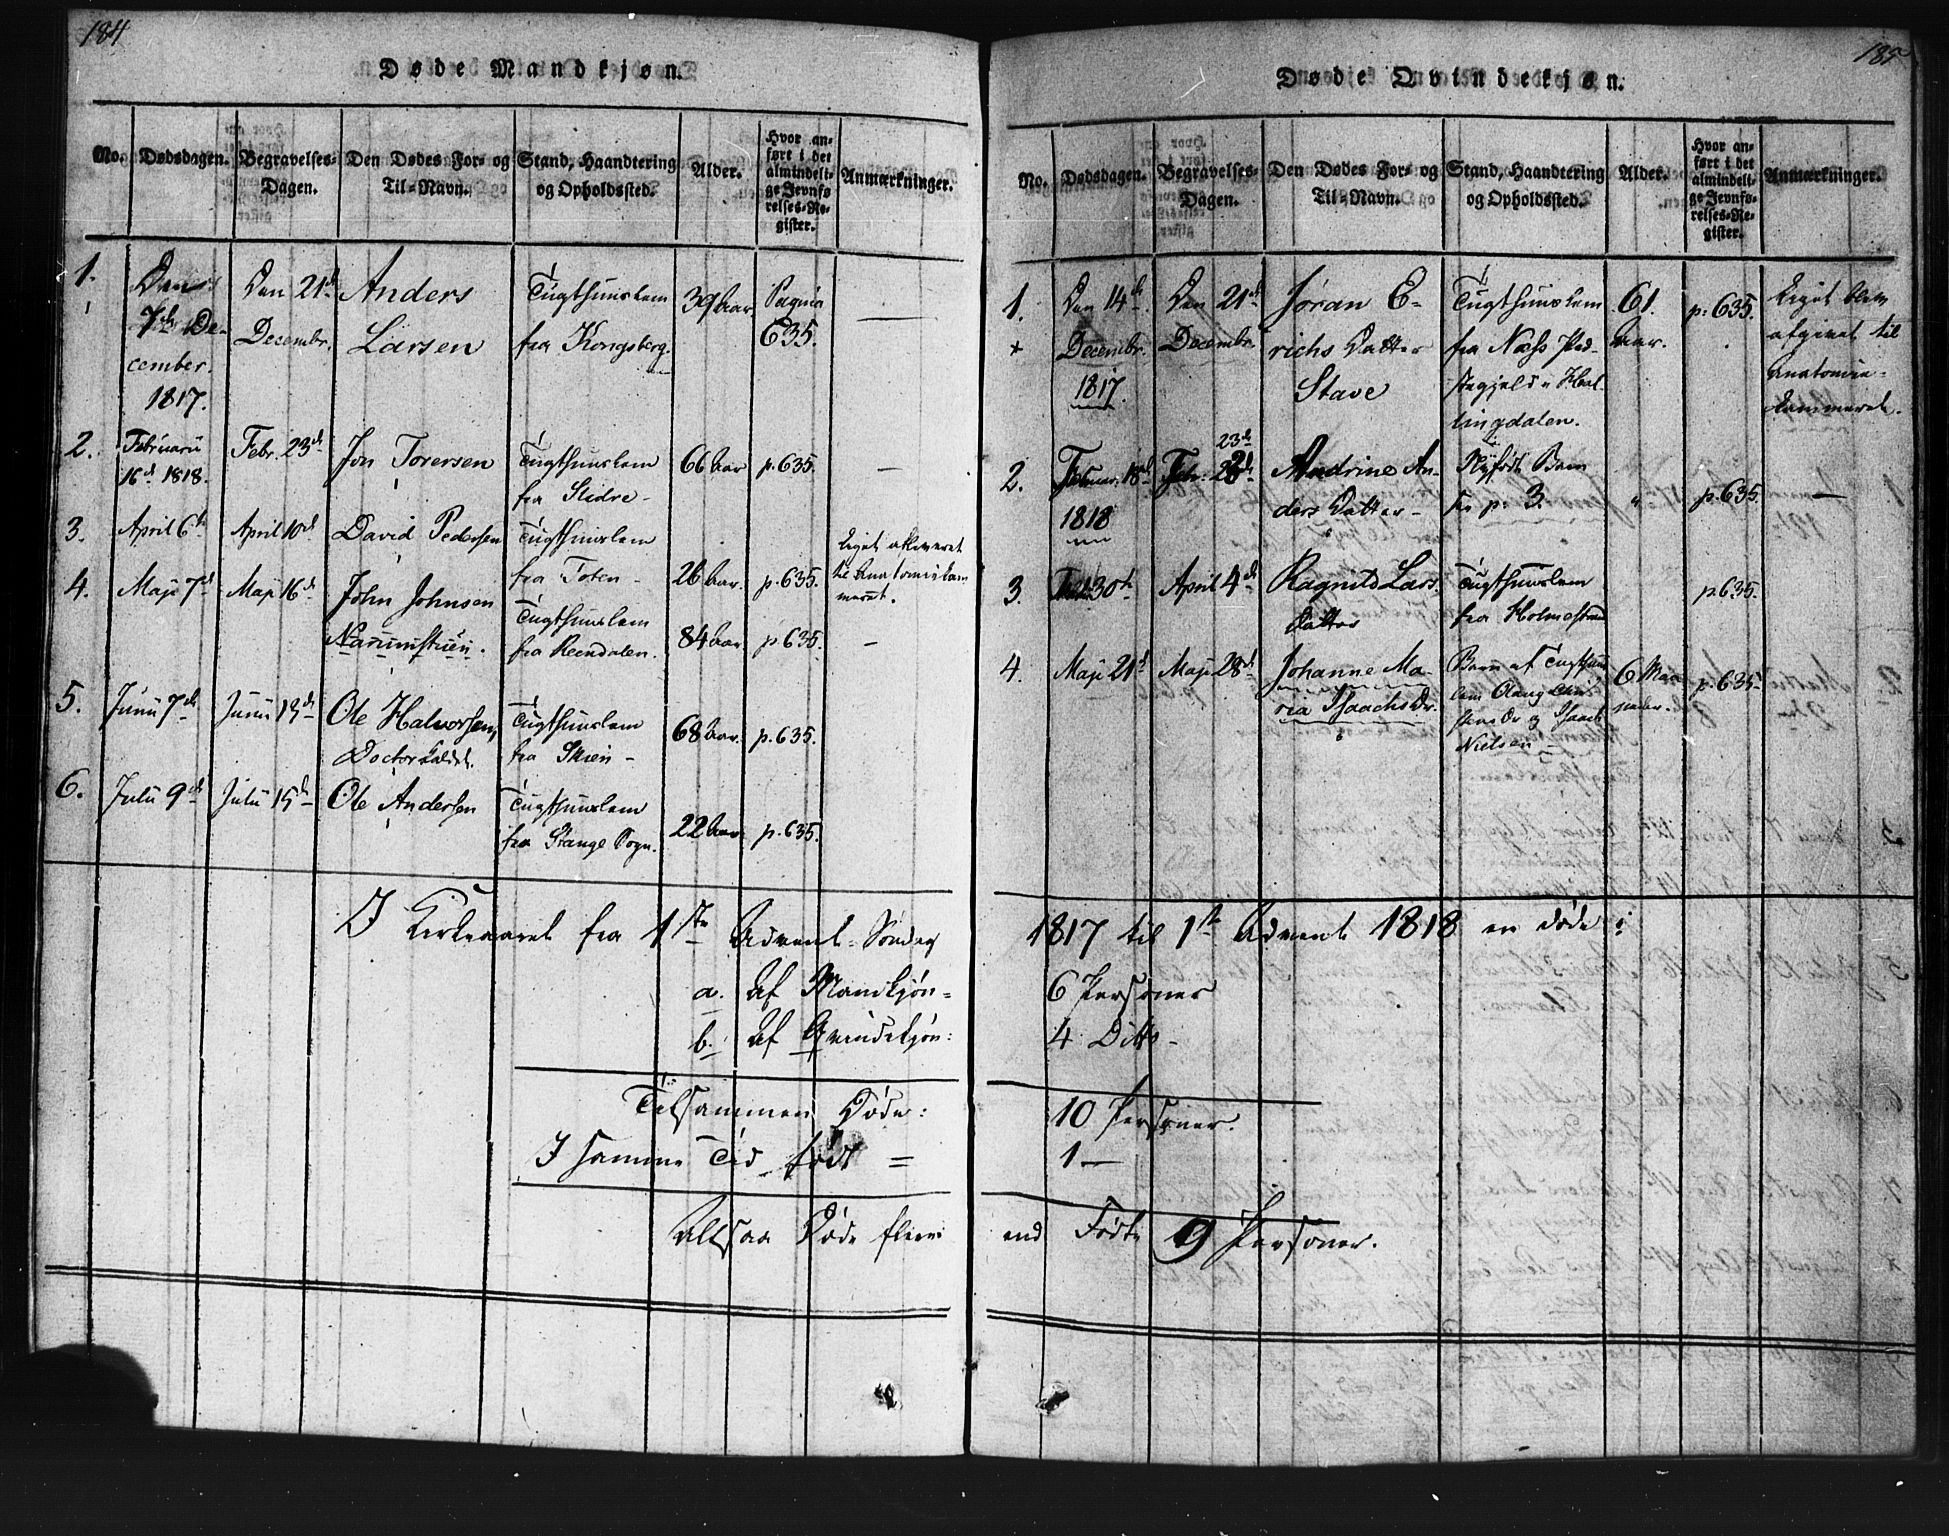 184
Døde Mandkjøn.
No.
Dødsdagen.
Begravelses-
Dagen.
Den Dødes For- og
Til-Navn.
Stand, Haandtering
og Opholdssted.
Alder.
Hvor an-
ført i det
almindeli-
ge Jevnfø-
relses-Re-
gister.
Anmærkninger.
1.
Den
7de De-
cember.
1817.
Den 21de
Decembr.
Anders
Larsen
Tugthuuslem
fra Kongsberg.
39 Aar
Pagina
635.
2.
Februarii
16de 1818.
Febr. 23de
Jon Torersen
Tugthuuslem
fra Slidre -
66 Aar
p. 635.
3.
April 6te
April 10de
David Pedersen
Tugthuuslem
fra Toten -
26 Aar.
p. 635.
Liget afleveret
til Anatomiekam
meret.
4.
Maji 7de
Maji 16de
John Johnsen
Narumstuen.
Tugthuuslem
fra Reendalen.
84 Aar
p. 635.
5.
Junii 7de
Junii 13de
Ole Halvorsen,
Doctor kaldet.
Tugthuuslem
fra Skien -
68 Aar.
p. 635.
6.
Julii 9de
Julii 15de
Ole Andersen
Tugthuuslem
fra Stange Sogn.
22 Aar
p. 635.
I Kirkeaaret fra 1ste Advent-Søndag
a. Af Mandkjøn =
b. Af Qvindekjøn:
Tilsammen Døde:
I samme Tid født =
Altsaa Døde fleere
185
Døde Qvindekjøn.
No.
Dødsdagen.
Begravelses-
Dagen.
Den Dødes For- og
Til-Navn.
Stand, Haandtering
og Opholdssted.
Alder.
Hvor an-
ført i det
almindeli-
ge Jevnfø-
relses-Re-
gister.
Anmærkninger.
1.
Den 14de
Decembr.
1817.
Den 21de
Decembr.
Jøran E-
richs Datter
Stave
Tugthuuslem
fra Næss Præ-
stegjeld i Hal-
lingdalen.
61.
Aar.
p: 635.
Liget blev
afgivet til
Anatomie-
kammeret.
2.
Februar. 18de
1818
23de
Febr.
Andrine An-
ders Datter -
Nyfødt Barn
see p: 3.
"
p. 635.
3.
30te
April 4de
Ragnild Lars-
datter
Tugthuuslem
fra Holmestrand
p 635.
4.
Maji 21de
Maji 28de
Johanne Ma-
ria Isaachs Dr.
Barn af Tugthuus
lem
Dr og Isaach
Nielsen -
6 Maa-
neder.
p. 635
1817 til 1ste Advent 1818 ere døde:
6 Personer
4 Ditto -
10 Personer.
1 -
end Fødte 9 Personer.